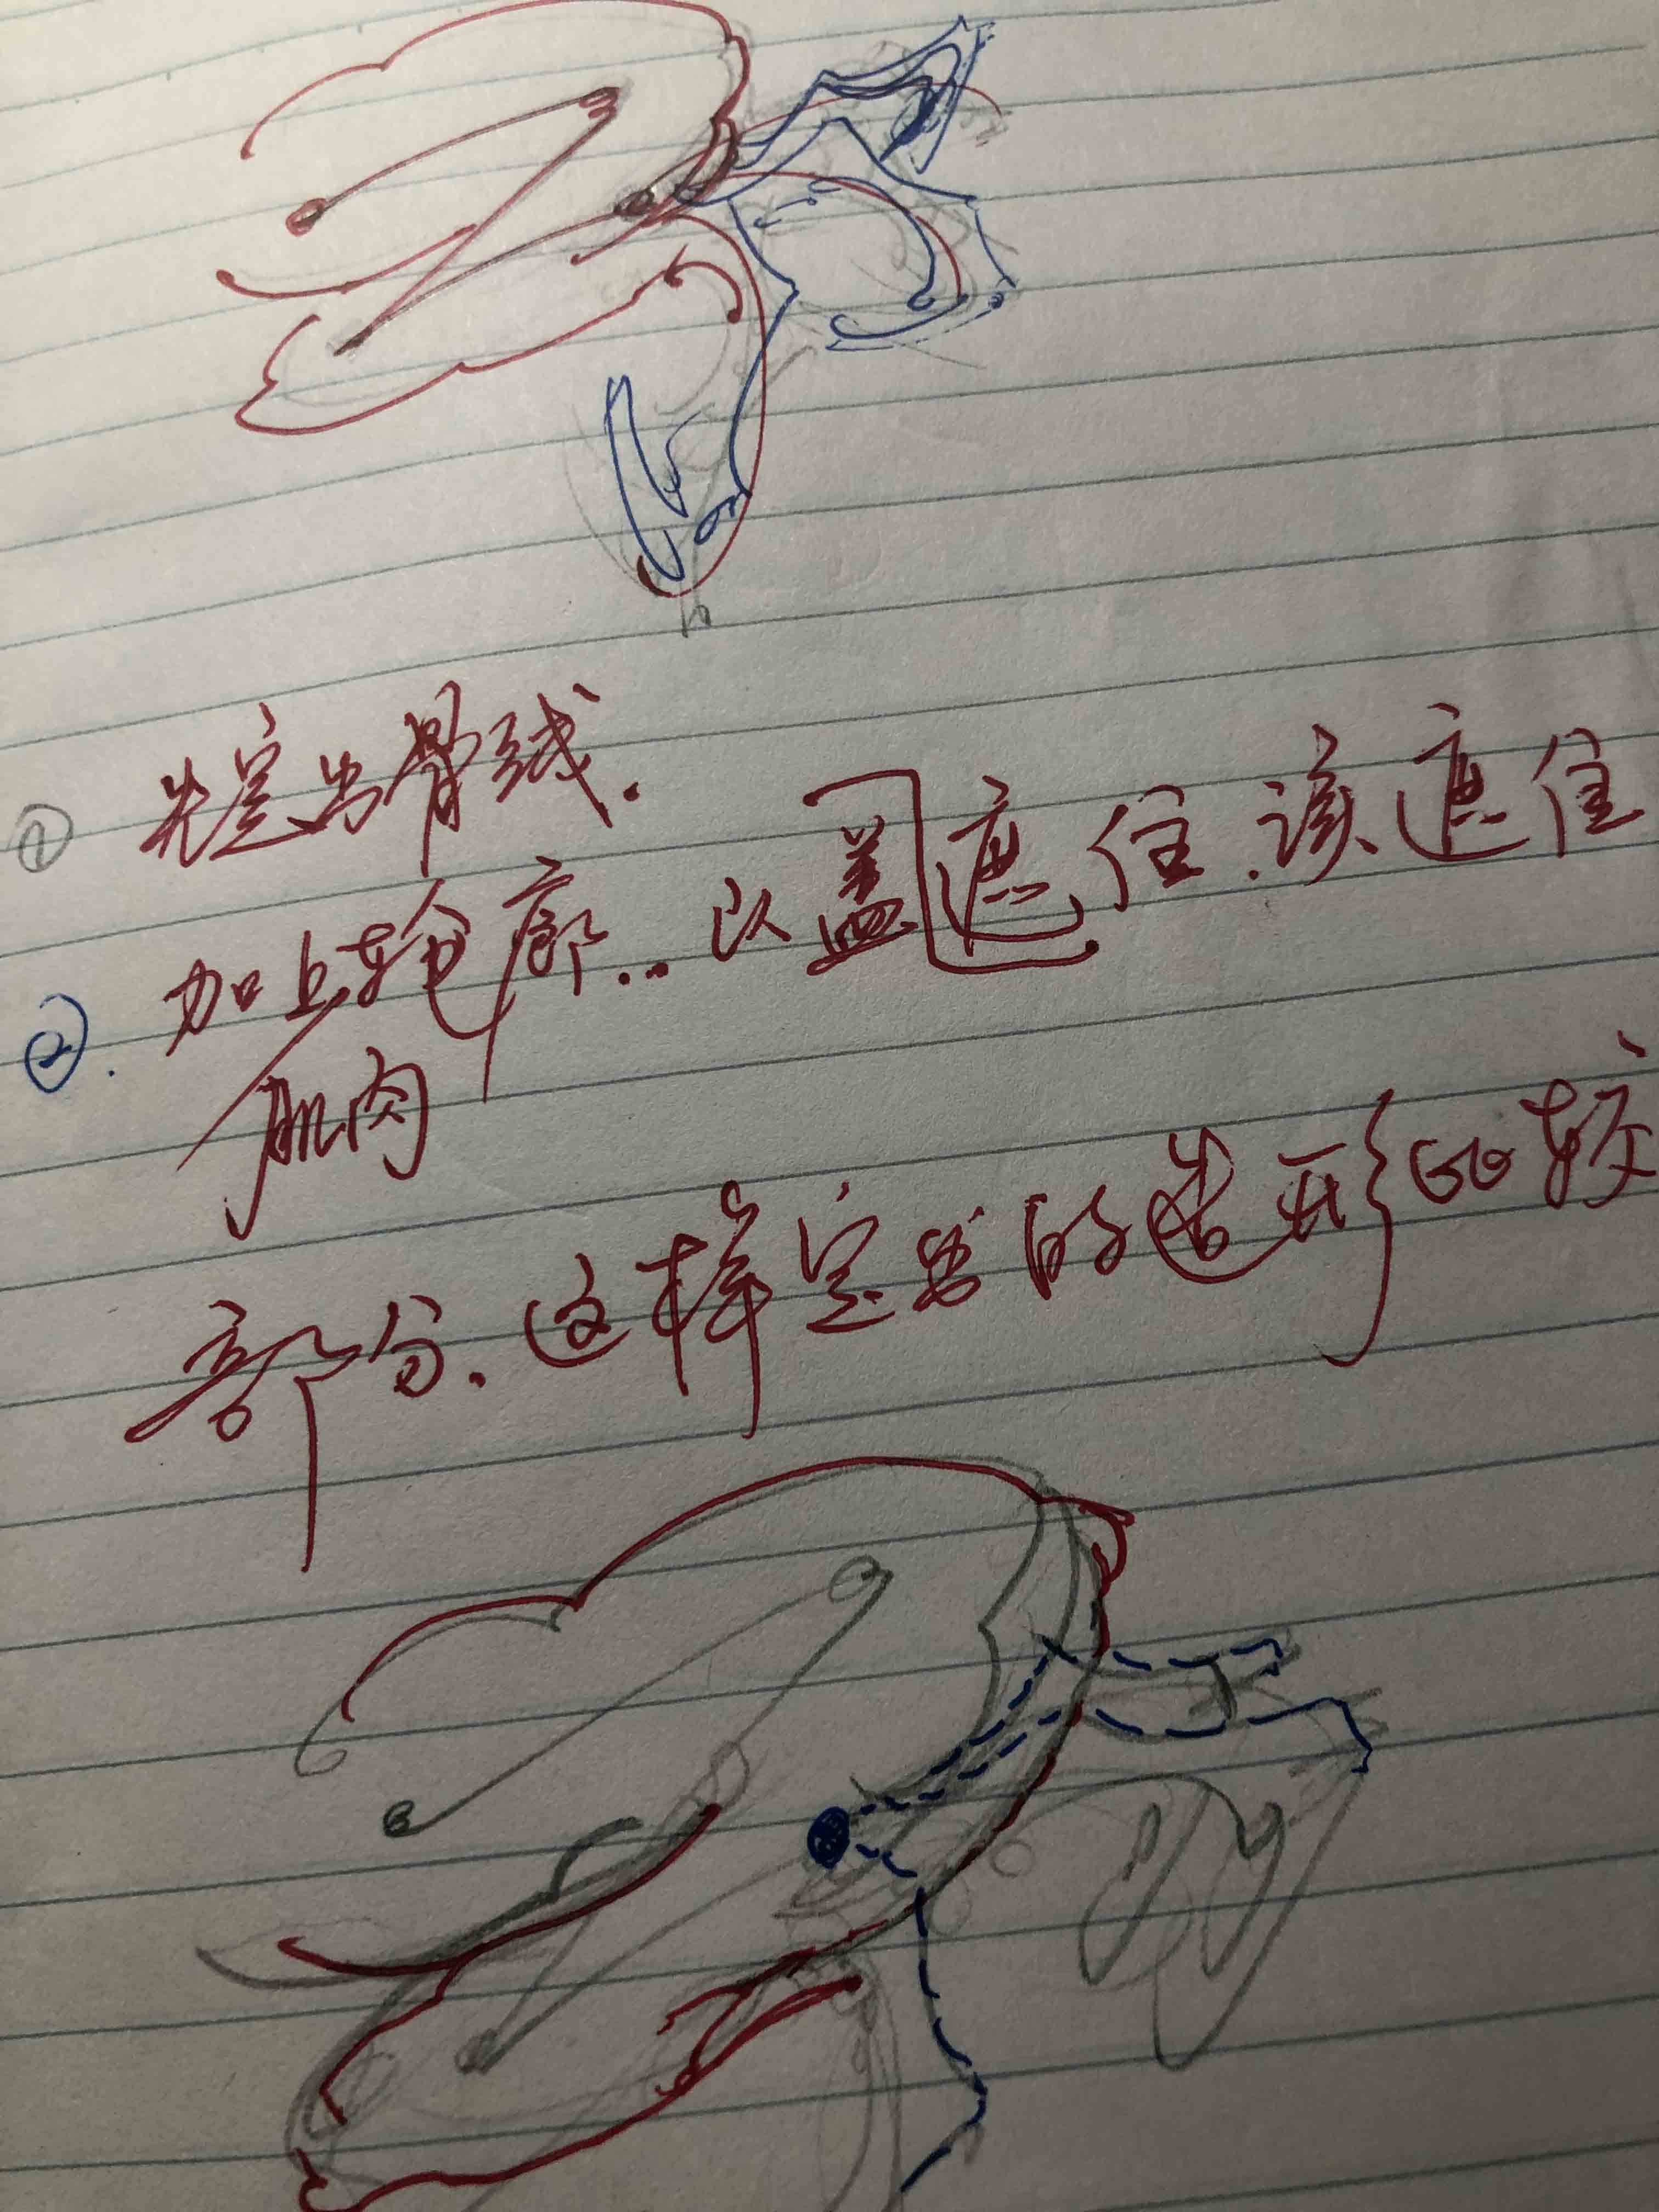 ① 先定出骨线.
②. 加上轮廓... 以盖遮住.该遮住
肌肉
部分.这样定出的造形比较